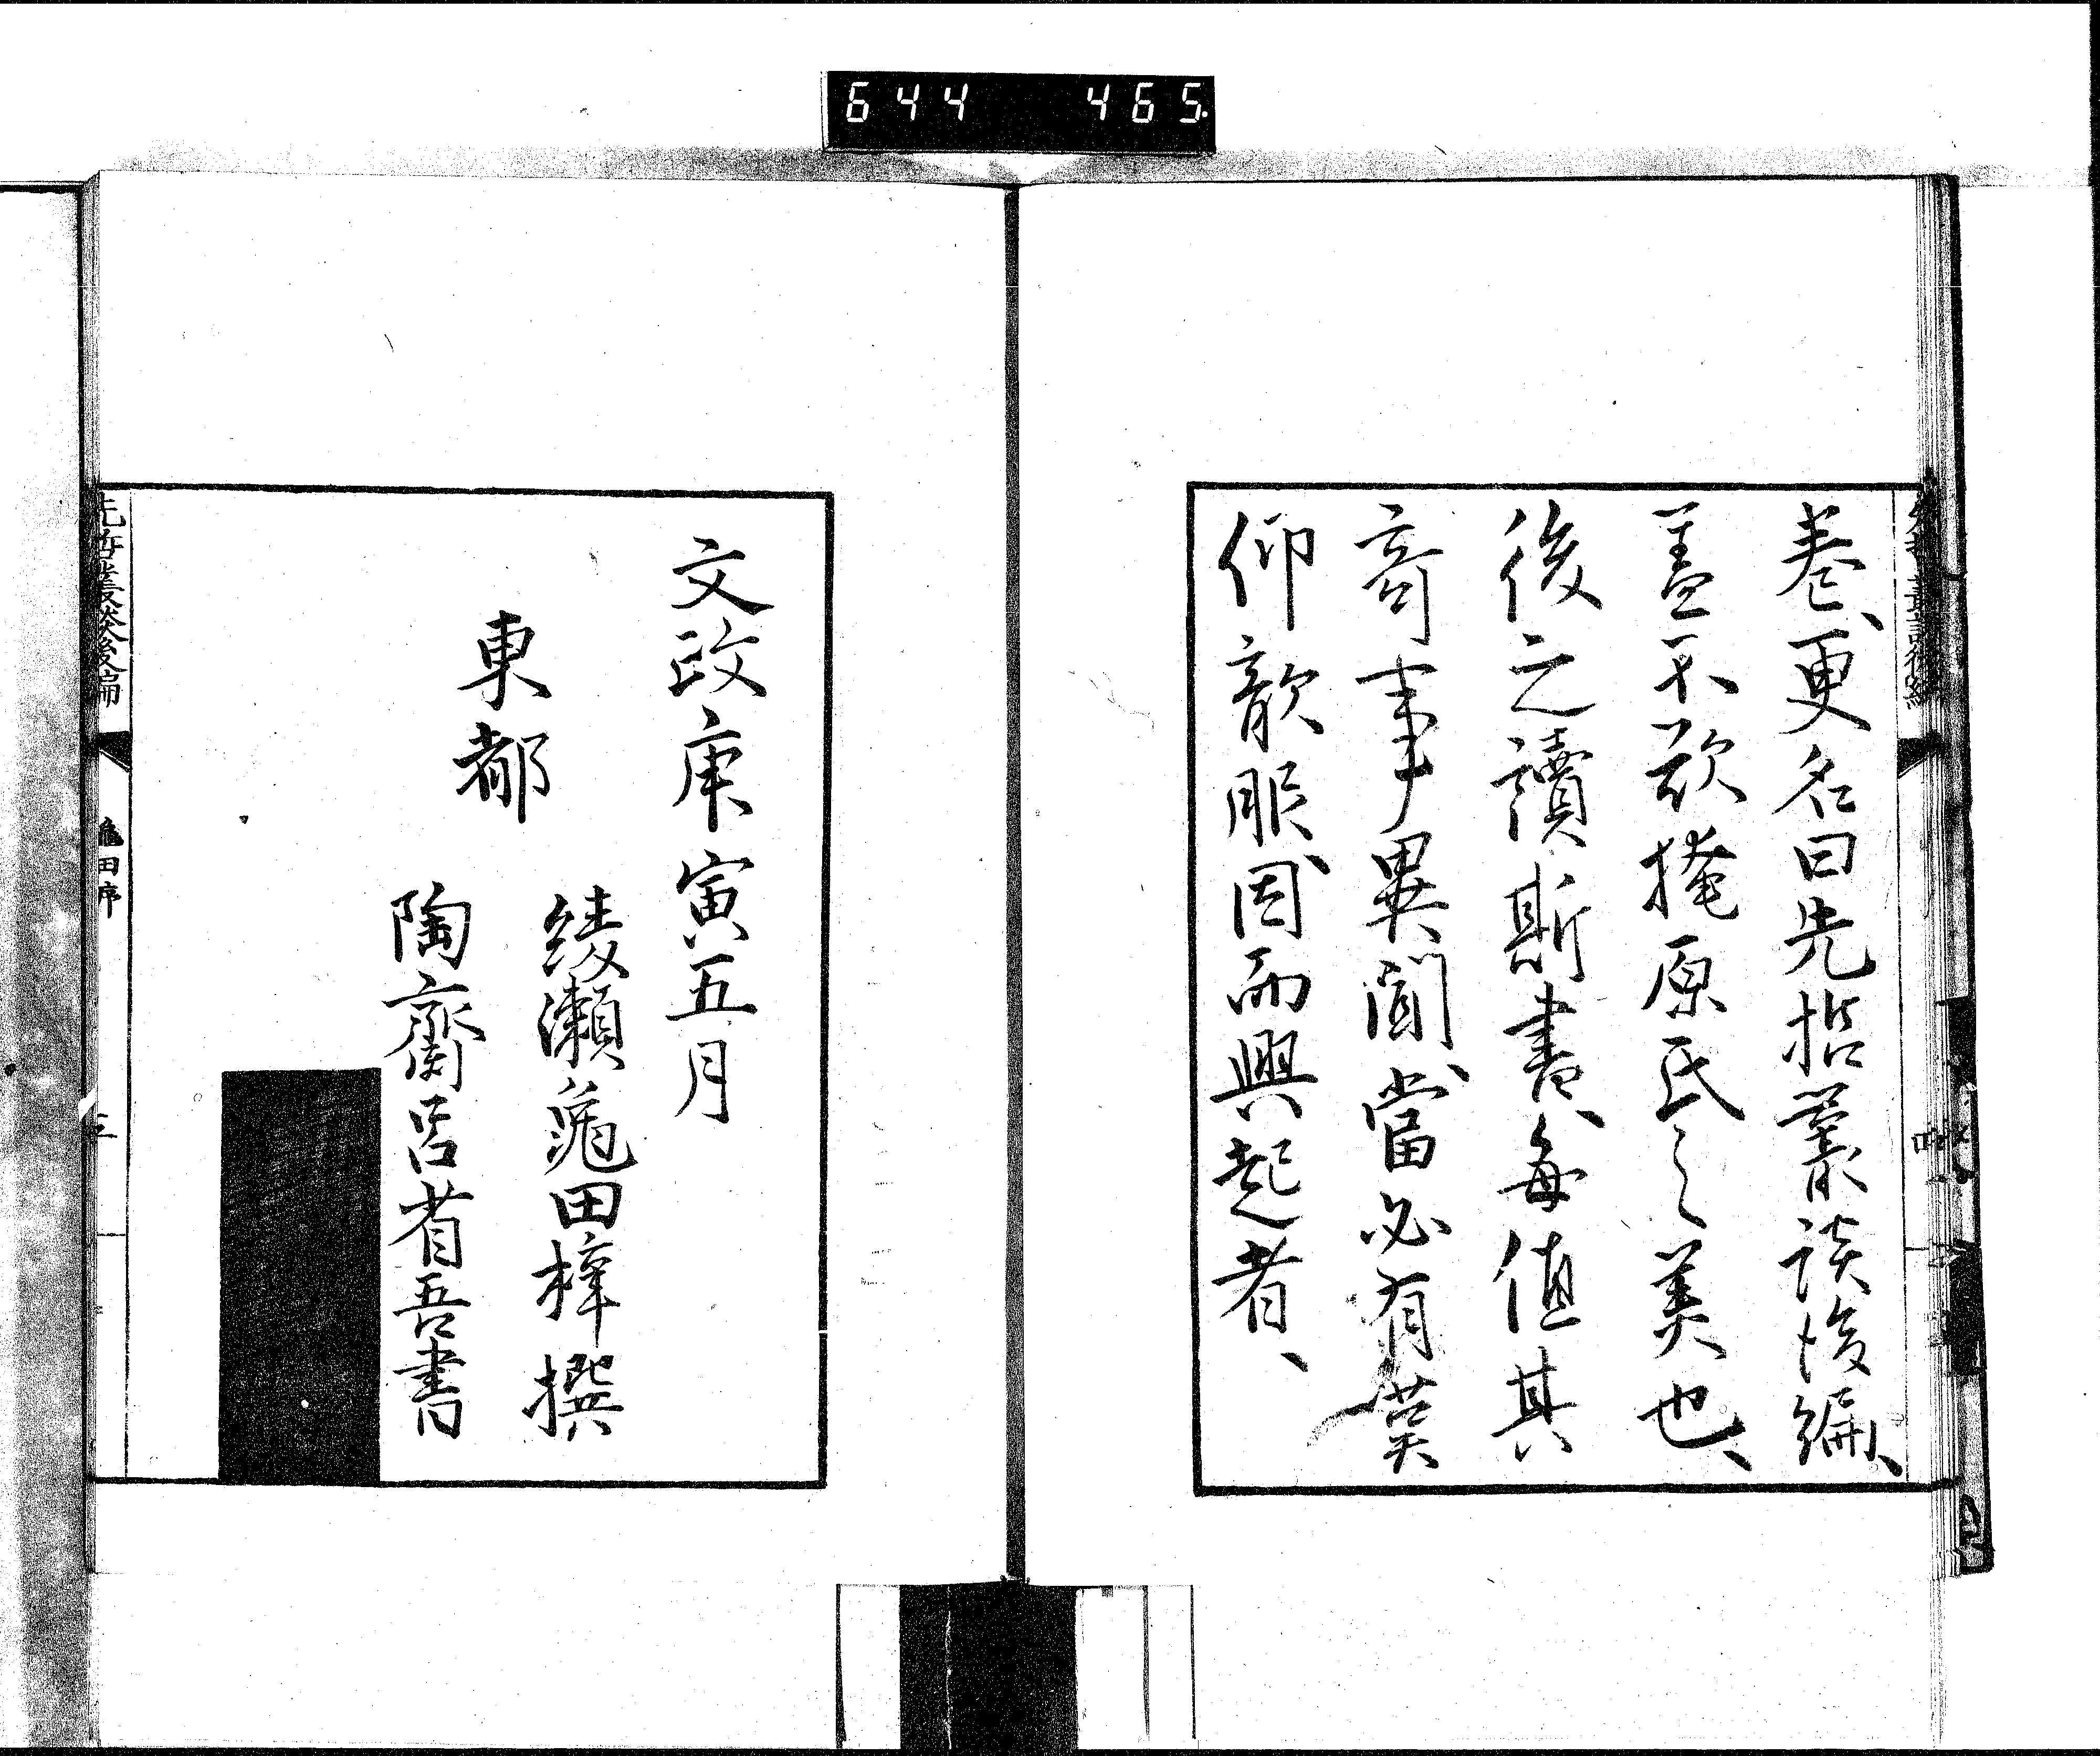 644 465.
先哲叢談後編
四
卷、更名曰先哲叢談後編、
蓋不欲掩原氏之美也、
後之讀斯書、每值其
奇事異聞、當必有莫
仰歆服、因而興起者、
文政庚寅五月
東都
綾瀨龜田梓撰
陶齋呂省吾書
先哲叢談後編
龜田序
三